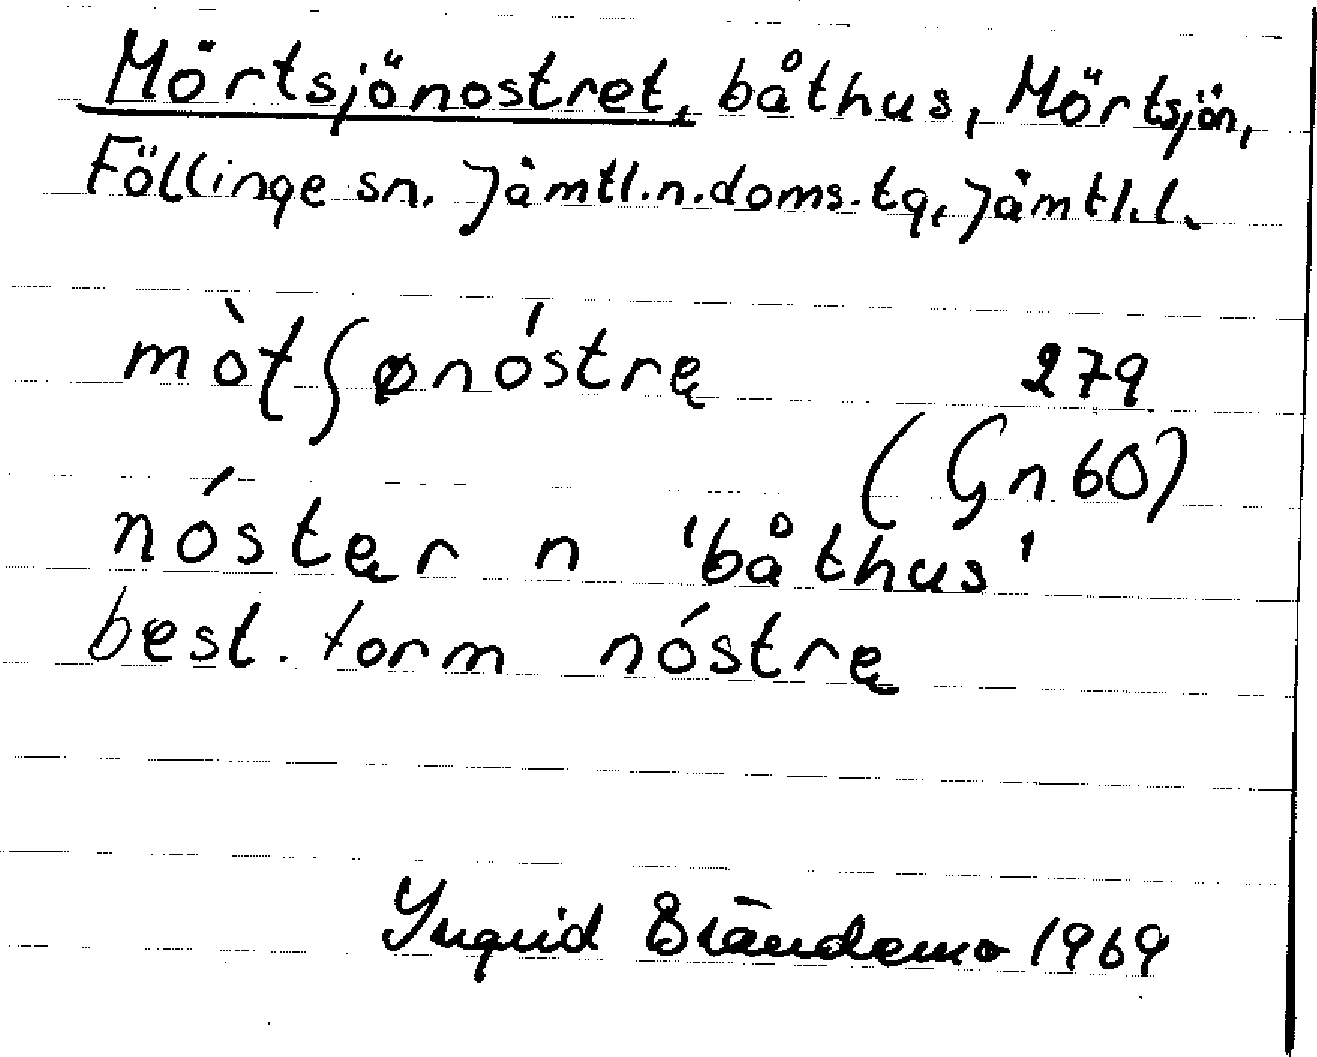 Mörtsjönostret, båthus, Mörtsjön,
Föllinge sn. Jämtl.n.doms.tg, Jämtl.l.
mòtʃønóstrę 279
(Gn 60)
nóstęr n 'båthus'
best. form nóstrę
Yngrid Brändemo 1969